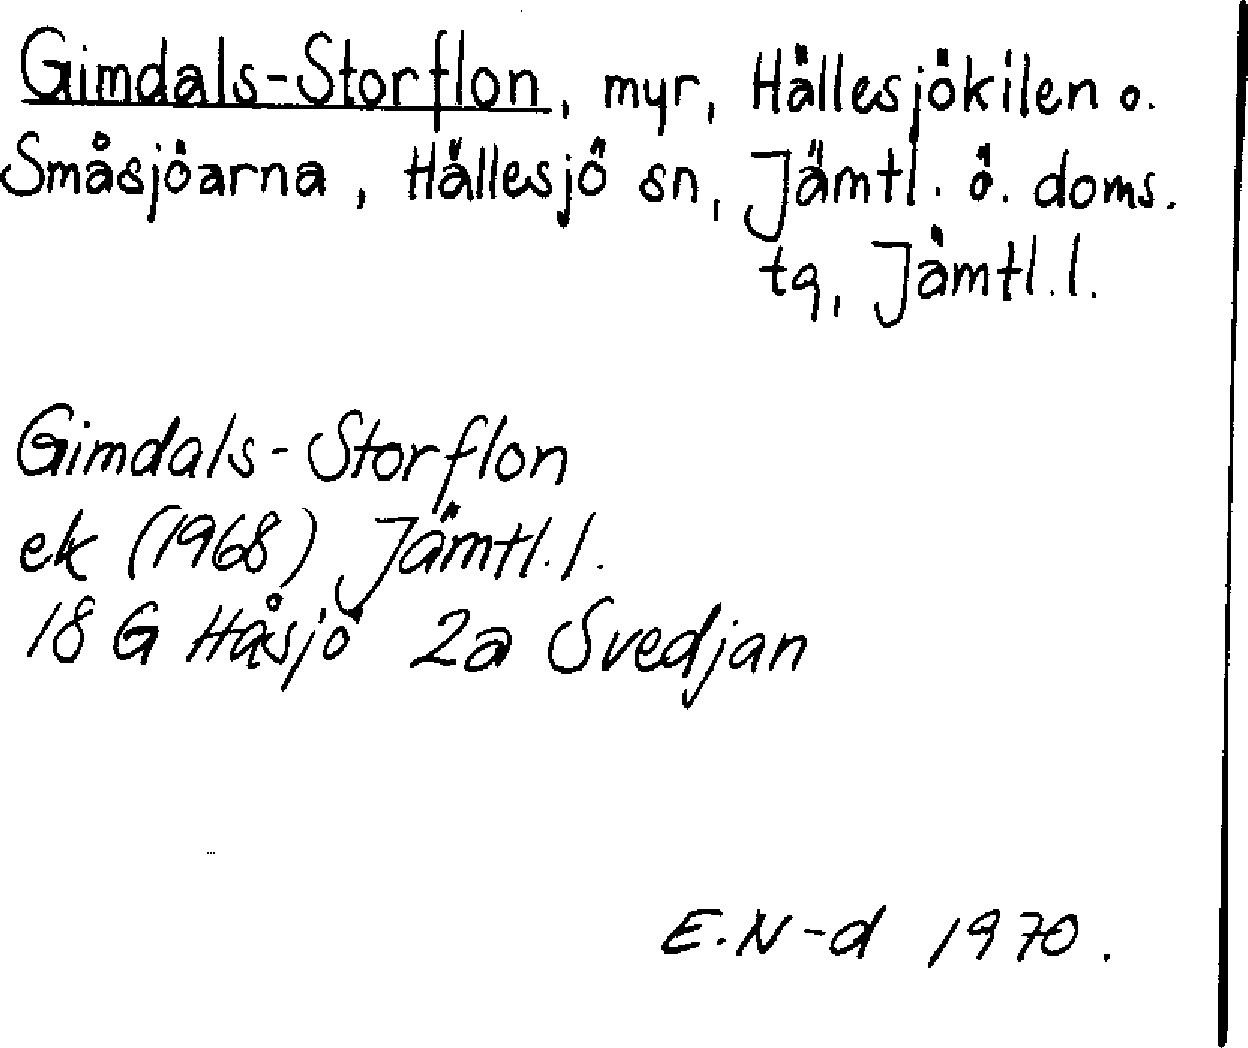 Gimdals-Storflon, myr, Hällesjökilen o.
Småsjöarna, Hällesjö sn, Jämtl. ö. doms.
tg, Jämtl.l.
Gimdals-Storflon
ek (1968) Jämtl.l.
18 G Håsjö 2a Svedjan
E.N-d 1970.